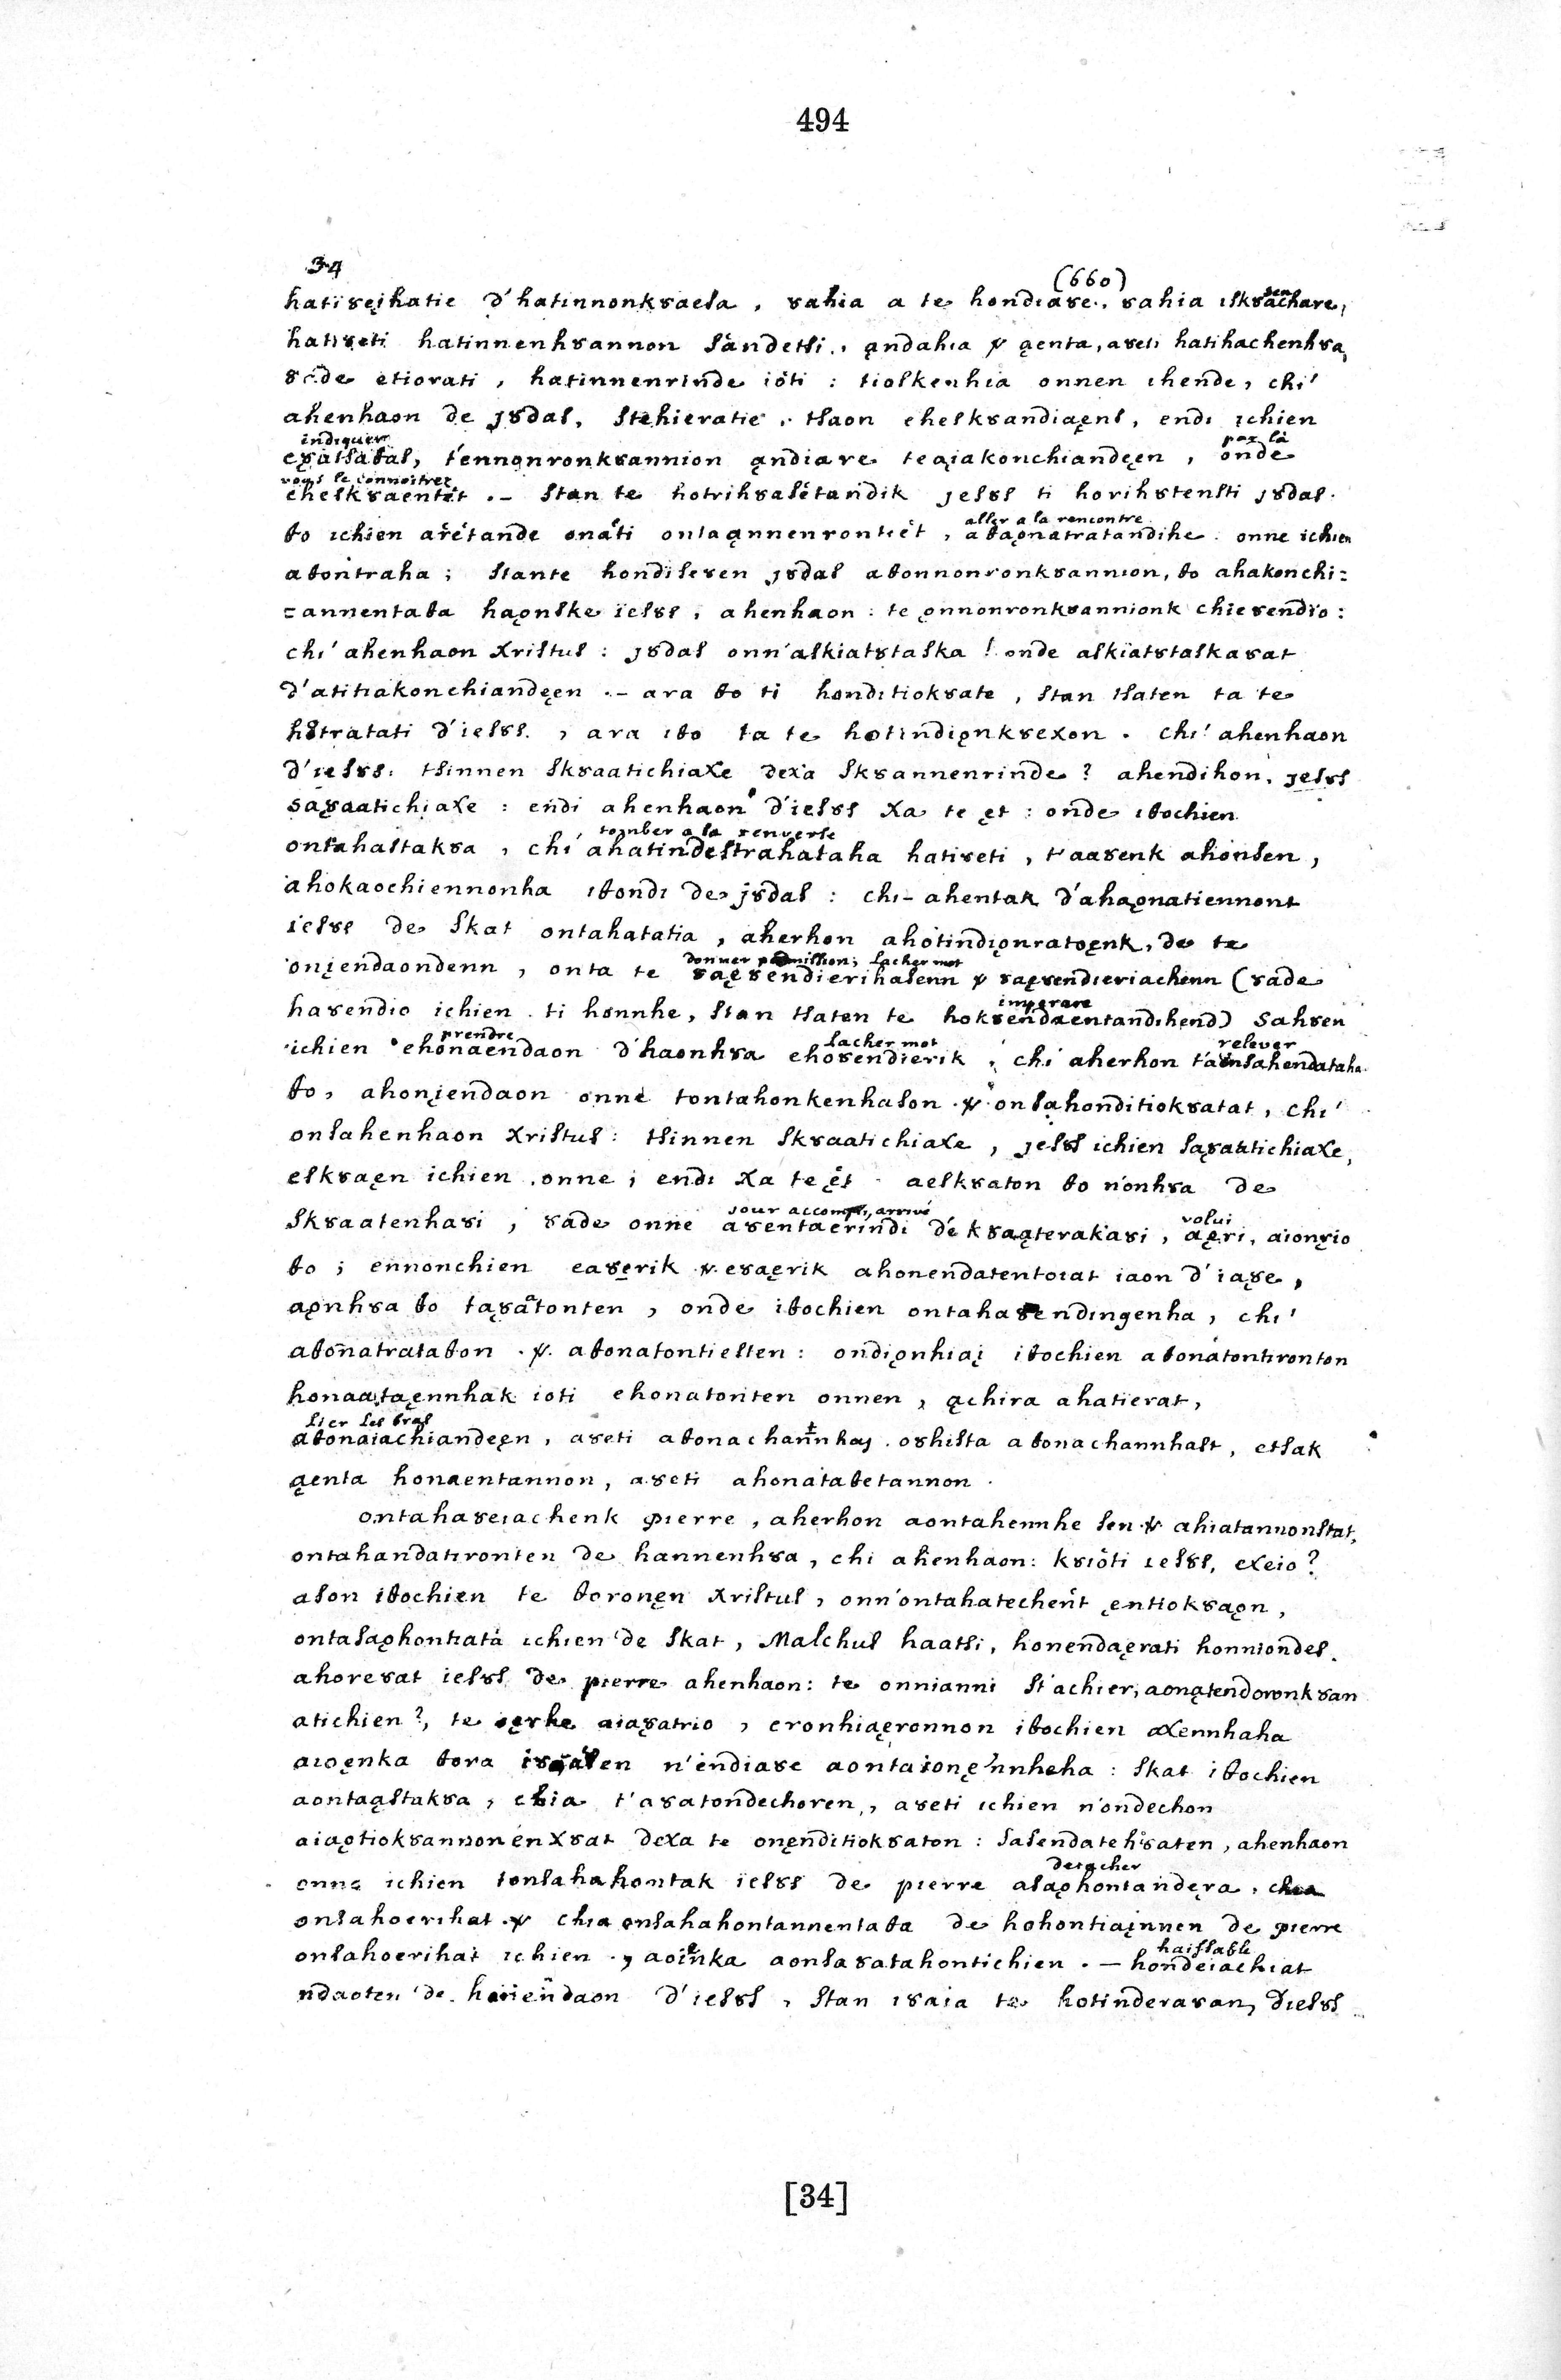 494
34
(660)
hatiȣęįhatie d'hatinnonkȣaesa, ȣahia a te hondiaȣe., ȣahia iskȣachare,
sen
hatiȣeti hatinnenhȣannon sandetsi., ąndahia & ąenta, aȣeti hatihachenhȣa,
ȣade etiorati, hatinnenrinde ioti : tioskenhia onnen ihende, chi'
ahenhaon de jȣdas, stehieratie. tsaon eheskȣandiaęns, endi ichien
indiquer par là
eȣatsaθas, t'ennonronkȣannion ąndiare teaįakonchiandęen, onde
vous le connoitrez
eheskȣaentet .- stan te hotrihȣasetandik jesȣs ti horihȣtensti jȣdas.
aller a la rencontre
θo ichien aretande onati onsaąnnenrontiet, aθaǫnatratandihe. onne ichien
aθontraha ; stante hondiseȣen jȣdas aθonnonronkȣannion, θo ahakonchi=
=annentaθa haǫnske iesȣs, ahenhaon : te ǫnnonronkȣannionk chieȣendio :
chi' ahenhaon Xristus : jȣdas onn'askiatȣtaska ! onde askiatȣtaskaȣat
d'atitiakonchiandęen .- ara θo ti honditiokȣate, stan tsaten ta te
hȣtratati d'iesȣs., ara iθo ta te hotindiǫnkȣexon. chi' ahenhaon
d'iesȣs. tsinnen skȣaatichiaxe dexa skȣannenrinde? ahendihon, jesȣs
saȣaatichiaxe : endi ahenhaon d'iesȣs xa te ęt : onde iθochien
tomber a la renverse
ontahastakȣa, chi' ahatindestrahataha hatiȣeti, t'aaȣenk ahonsen,
ahokaochiennonha iθondi de jȣdas : chi- ahentak d'ahaǫnatiennont
iesȣs de skat ontahatatia, aherhon ahotindiǫnratoęnk, de te
donner permission; lacher mot
onįendaondenn, onta te ȣaęȣendierihasenn & ȣaęȣendieriachenn (ȣade
imperare
haȣendio ichien ti honnhe, stan tsaten te hokȣendaentandihend) sahȣen
prendre lacher mot relever
ichien ehonaendaon d'haonhȣa ehoȣendierik ; chi' aherhon t'aonsahendataha
θo, ahonįendaon onne tontahonkenhason & onsahonditiokȣatat, chi'
onsahenhaon Xristus : tsinnen skȣaatichiaxe, jesȣs ichien saȣaatichiaxe,
eskȣaęn ichien onne ; endi xa te ęt aeskȣaton θo n'onhȣa de
jour accompli, arrivé volui
skȣaatenhaȣi, ȣade onne aȣentaerindi de kȣaąterakaȣi, aęri, aionȣio
θo ; ennonchien eaȣerik & eȣaęrik ahonendatentoiat iaon d'iaȣe,
aǫnhȣa θo taȣatonten, onde iθochien ontahaȣendingenha, chi'
aθonatrataθon & aθonatontiesten : ondiǫnhiaį iθochien aθonatontironton
honaataęnnhak ioti ehonatonten onnen, ąchira ahatierat,
lier les bras
aθonaiachiandęęn, aȣeti aθonachannhaȣ oȣhista aθonachannhast, etsak
ąenta honaentannon, aȣeti ahonataθetannon.
ontahaȣeiachenk pierre, aherhon aontahennhe sen & ahiatannonstat,
ontahandatironten de hannenhȣa, chi ahenhaon : kȣioti iesȣs, exeio?
ason iθochien te θoronęn Xristus, onn'ontahatechent ęntiokȣaǫn,
ontasaǫhontiata ichien de skat, Malchus haatsi, honendaęrati honniondes.
ahoreȣat iesȣs de pierre ahenhaon : te onnianni st'achier, aonątendoronkȣan
atichien?, te ȣęrhe aiaȣatrio, eronhiaęronnon iθochien axennhaha
n'endiaȣe aontaionę'nnhaha : skat iθochien
aontaąstakȣa, chia t'aȣatondechoren, aȣeti ichien n'ondechon
aiaǫtiokȣannonenxȣat dexa te onęnditiokȣaton : sasendatehȣaten, ahenhaon
detacher
onne ichien tonsahahontak iesȣs de pierre asaǫhontandęra, chia
onsahoerihat & chia onsahahontannentaθa de hohontiaįnnen de pierre
haissable
onsahoerihat ichien ., aoienka aonsaȣatahontichien .- hondeiachiat
ndaoten de honiendaon d'iesȣs, stan iȣaia te hotinderaȣan, d'iesȣs
[34]